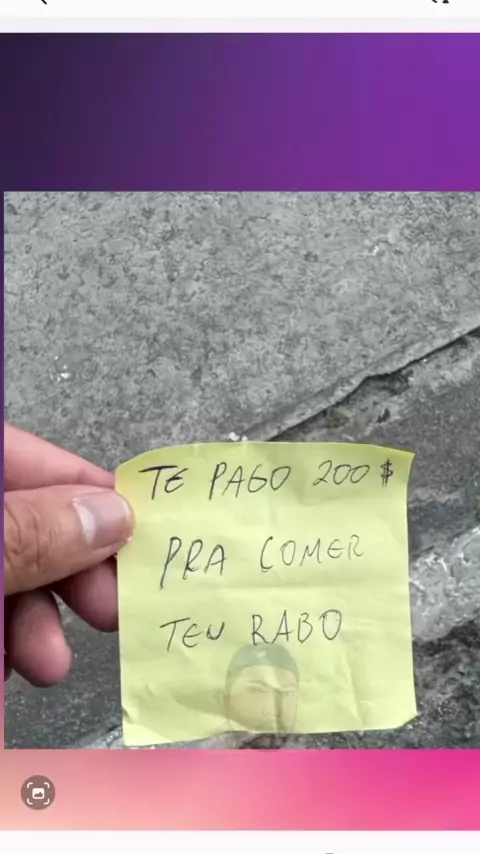 TE PAGO 200$
PRA COMER
TEU RABO